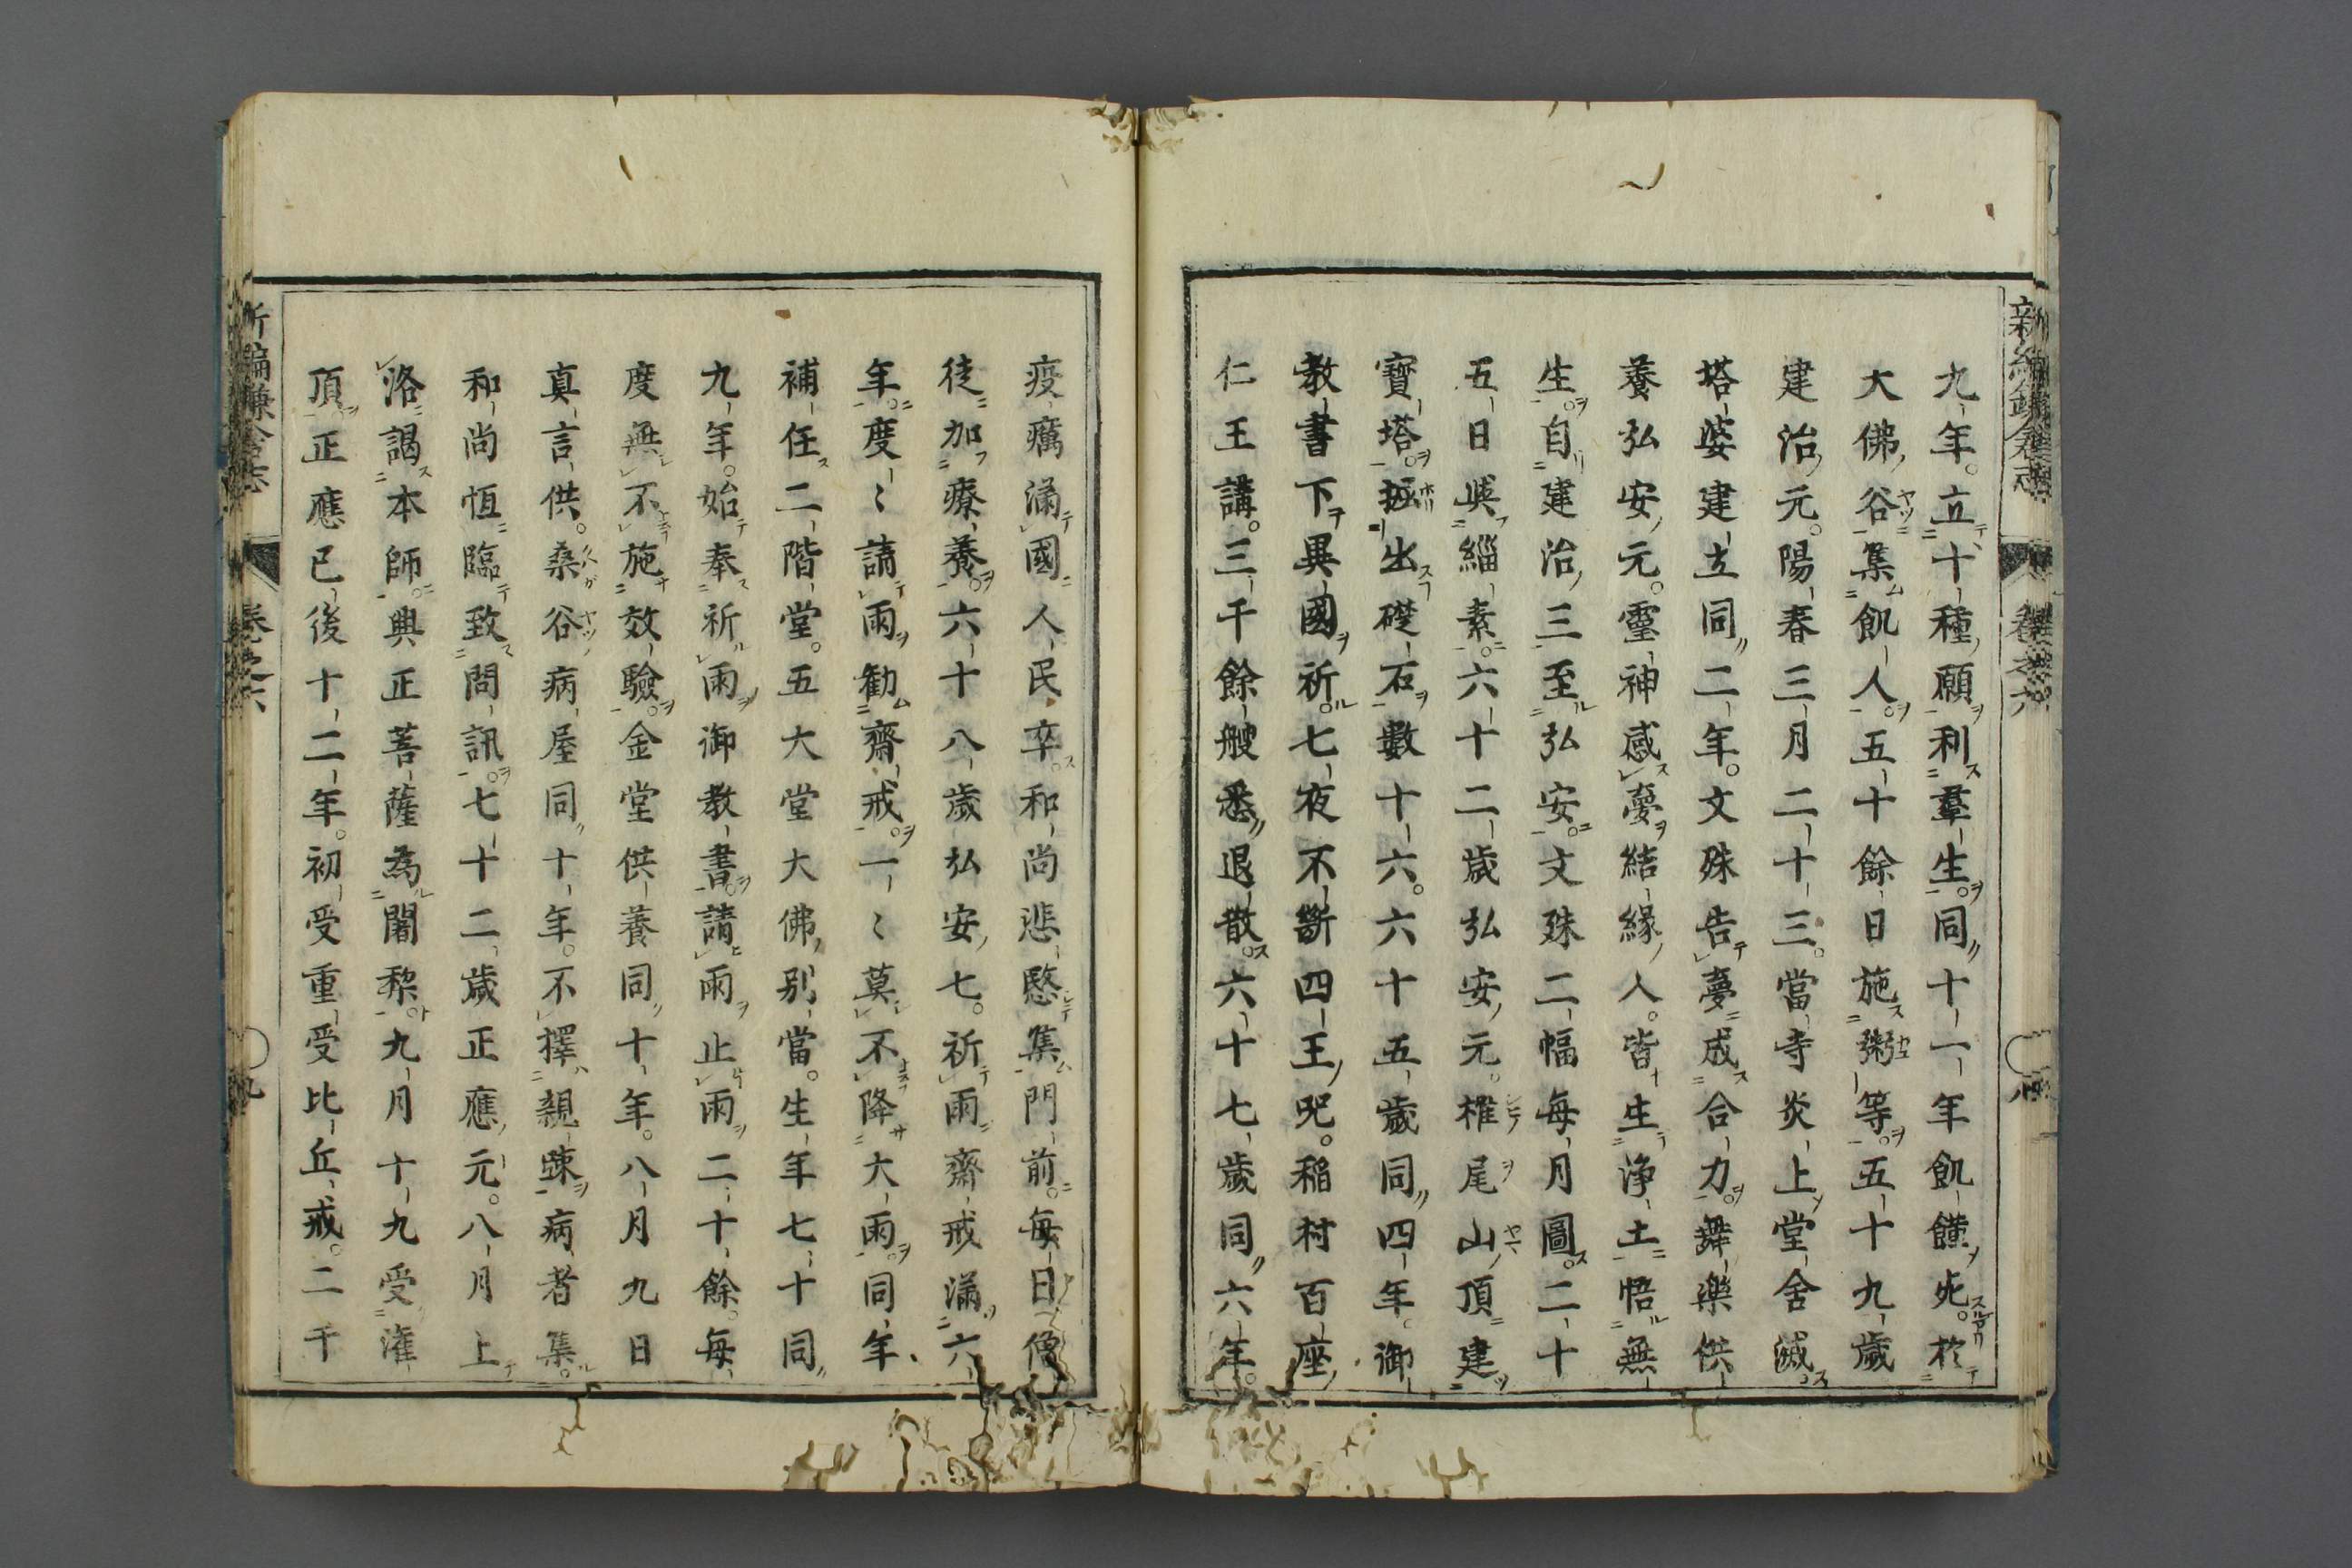 新編鎌倉志 卷之六
九年。立十種願利羣生。同十一年飢饉死。於
大佛谷集飢人。五十餘日施粥等。五十九歲
建治元。陽春三月二十三。當寺炎上堂舍滅。
塔婆建立同二年。文殊告夢成合力。舞樂供
養弘安元。靈神感夢結緣人。皆生淨土悟無
生。自建治三至弘安。文殊二幅每月圖。二十
五日與緇素。六十二歲弘安元。椎尾山頂建
寶塔。掘出礎石數十六。六十五歲同四年。御
教書下異國祈。七夜不斷四王呪。稲村百座
仁王講。三千餘艘悉退散。六十七歲同六年。
疫癘滿國人民卒。和尚悲愍集門前。每日僧
徒加療養。六十八歲弘安七。祈雨齋戒滿六
年。度々請雨勸齋戒。一々莫不降大雨。同年
補任二階堂。五大堂大佛別當。生年七十同
九年。始奉祈雨御教書。請雨止雨二十餘。每
度無不施效驗。金堂供養同十年。八月九日
真言供。桑谷病屋同十年。不擇親踈病者集。
和尚恆臨致問訊。七十二歲正應元。八月上
洛謁本師。興正菩薩為闍梨。九月十九受灌
頂。正應已後十二年。初受重受比丘戒。二千
新編鎌倉志 卷之六 九